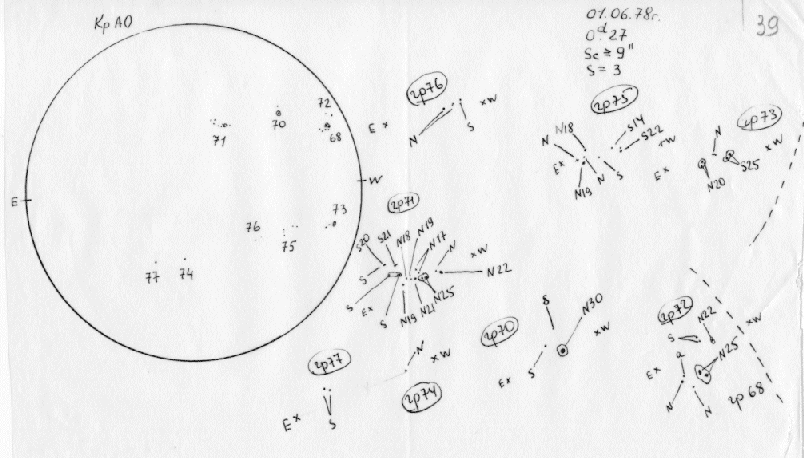 КрАО
01.06.78г.
0ᵈ27
Sc ≈ 9"
S = 3
39
72
71
70
68
E
W
73
76
75
77
74
гр76
E x
x W
N
S
гр75
N
N18
S14
S22
E x
+W
N19
N
S
гр73
N
x W
E x
N20
S25
гр71
S20
S21
N18
N19
N17
N
x W
S
N22
S
E x
S
N19
N21
N25
гр70
S
N30
x W
E x
S
гр72
N22
x W
S
a
N25
E x
N
N
гр68
гр77
E x
S
гр74
N
x W